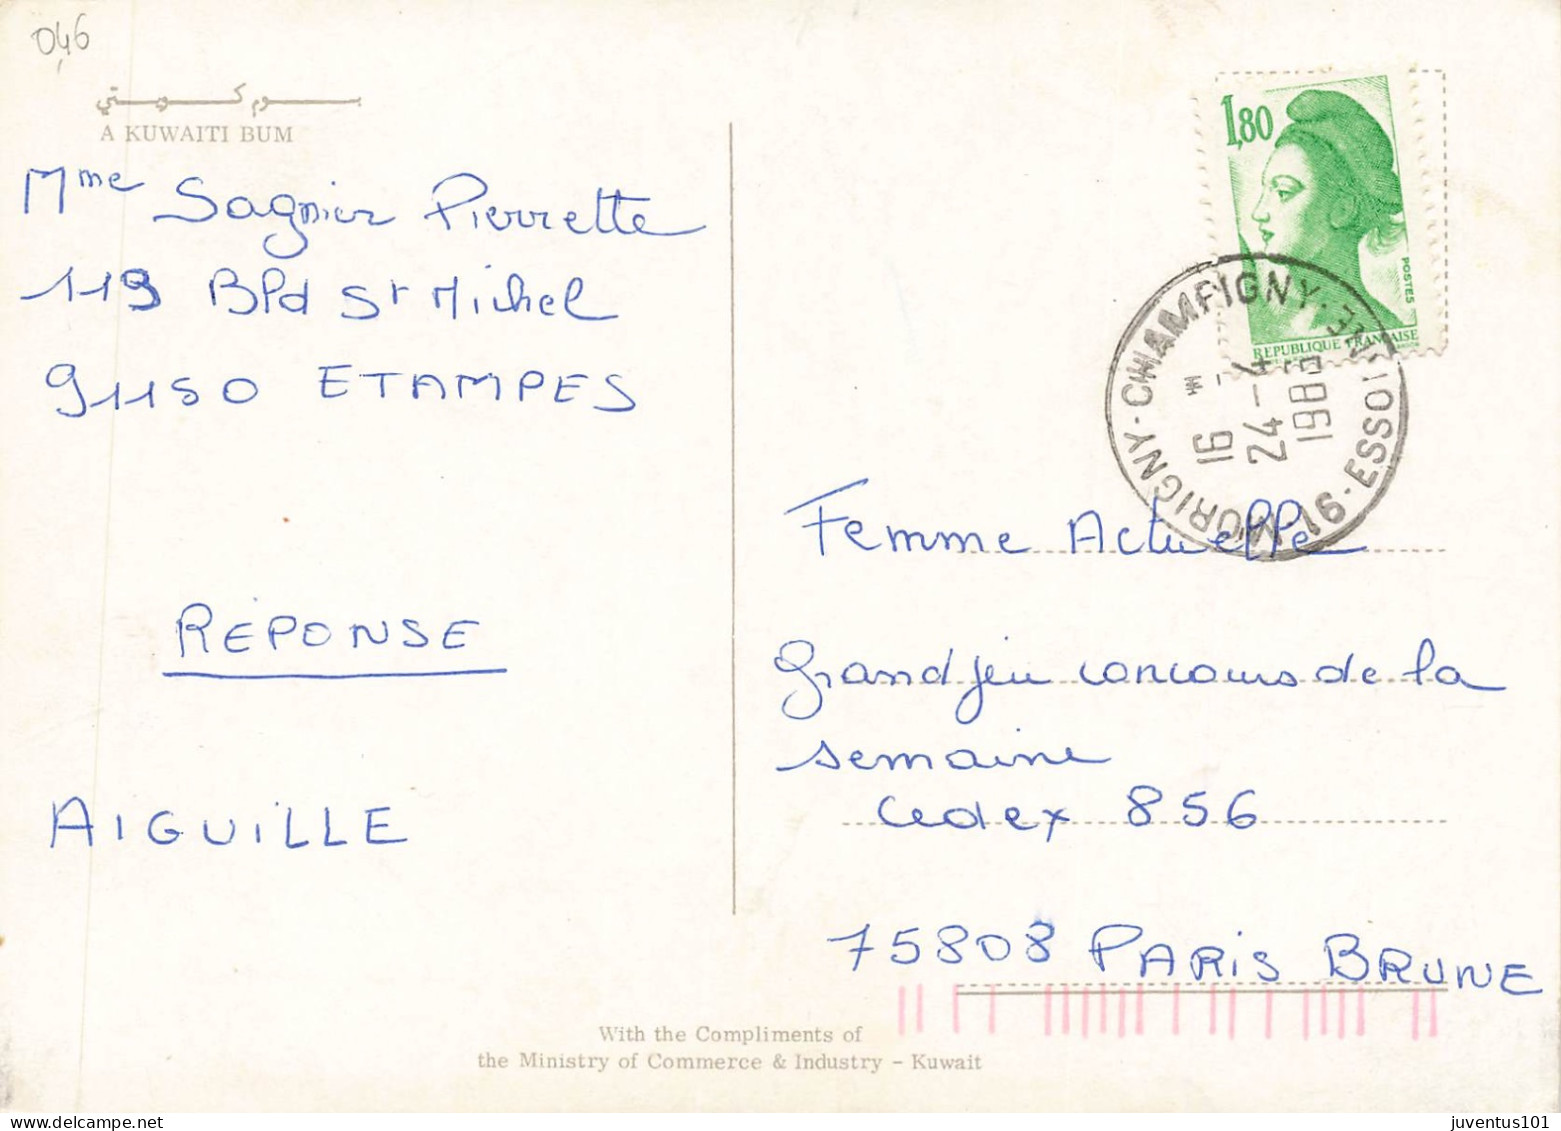 046
بوم كويتي
A KUWAITI BUM
Mme Sagnier Pierrette
119 Bld St Michel
91150 ETAMPES
RÉPONSE
AIGUILLE
1,80
POSTES
REPUBLIQUE FRANÇAISE
MORIGNY-CHAMPIGNY·
91·ESSONNE
16
24-4
Femme Actuelle
Grand jeu concours de la
semaine
Cedex 856
75808 PARIS BRUNE
With the Compliments of
the Ministry of Commerce & Industry - Kuwait
juventus101